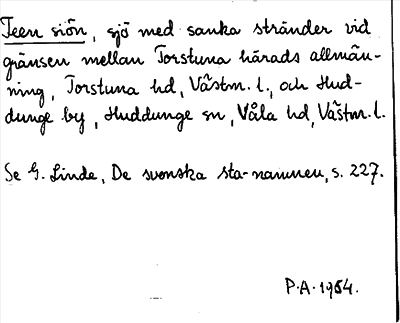 Teen siön, sjö med sanka stränder vid
gränsen mellan Torstuna härads allmän-
ning, Torstuna hd, Västm. l., och Hud-
dunge by, Huddunge sn, Våla hd, Västm. l.
Se G. Linde, De svenska sta-namnen, s. 227.
P.A. 1954.